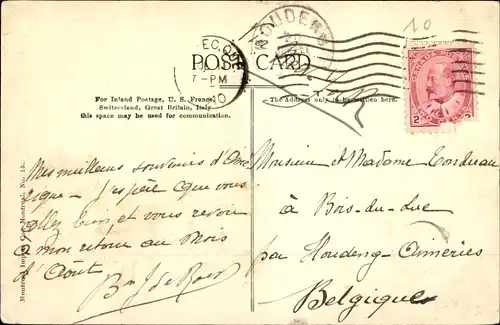 10
HOUDENG
EC. QUE
7-PM
10
CANADA POSTAGE
2 2
POST CARD
For Inland Postage, U. S. France,
Switzerland, Great Britain, Italy
this space may be used for communication.
The Address only to be written here.
Mes meilleurs souvenirs d'Amé
rique — j'espère que vous
allez bien et vous revoir
à mon retour au mois
d'Août
Bon J de Roer
Monsieur et Madame Tondreau
à Bois-du-Luc
par Houdeng-Aimeries
Belgique
Montreal, No. 15.